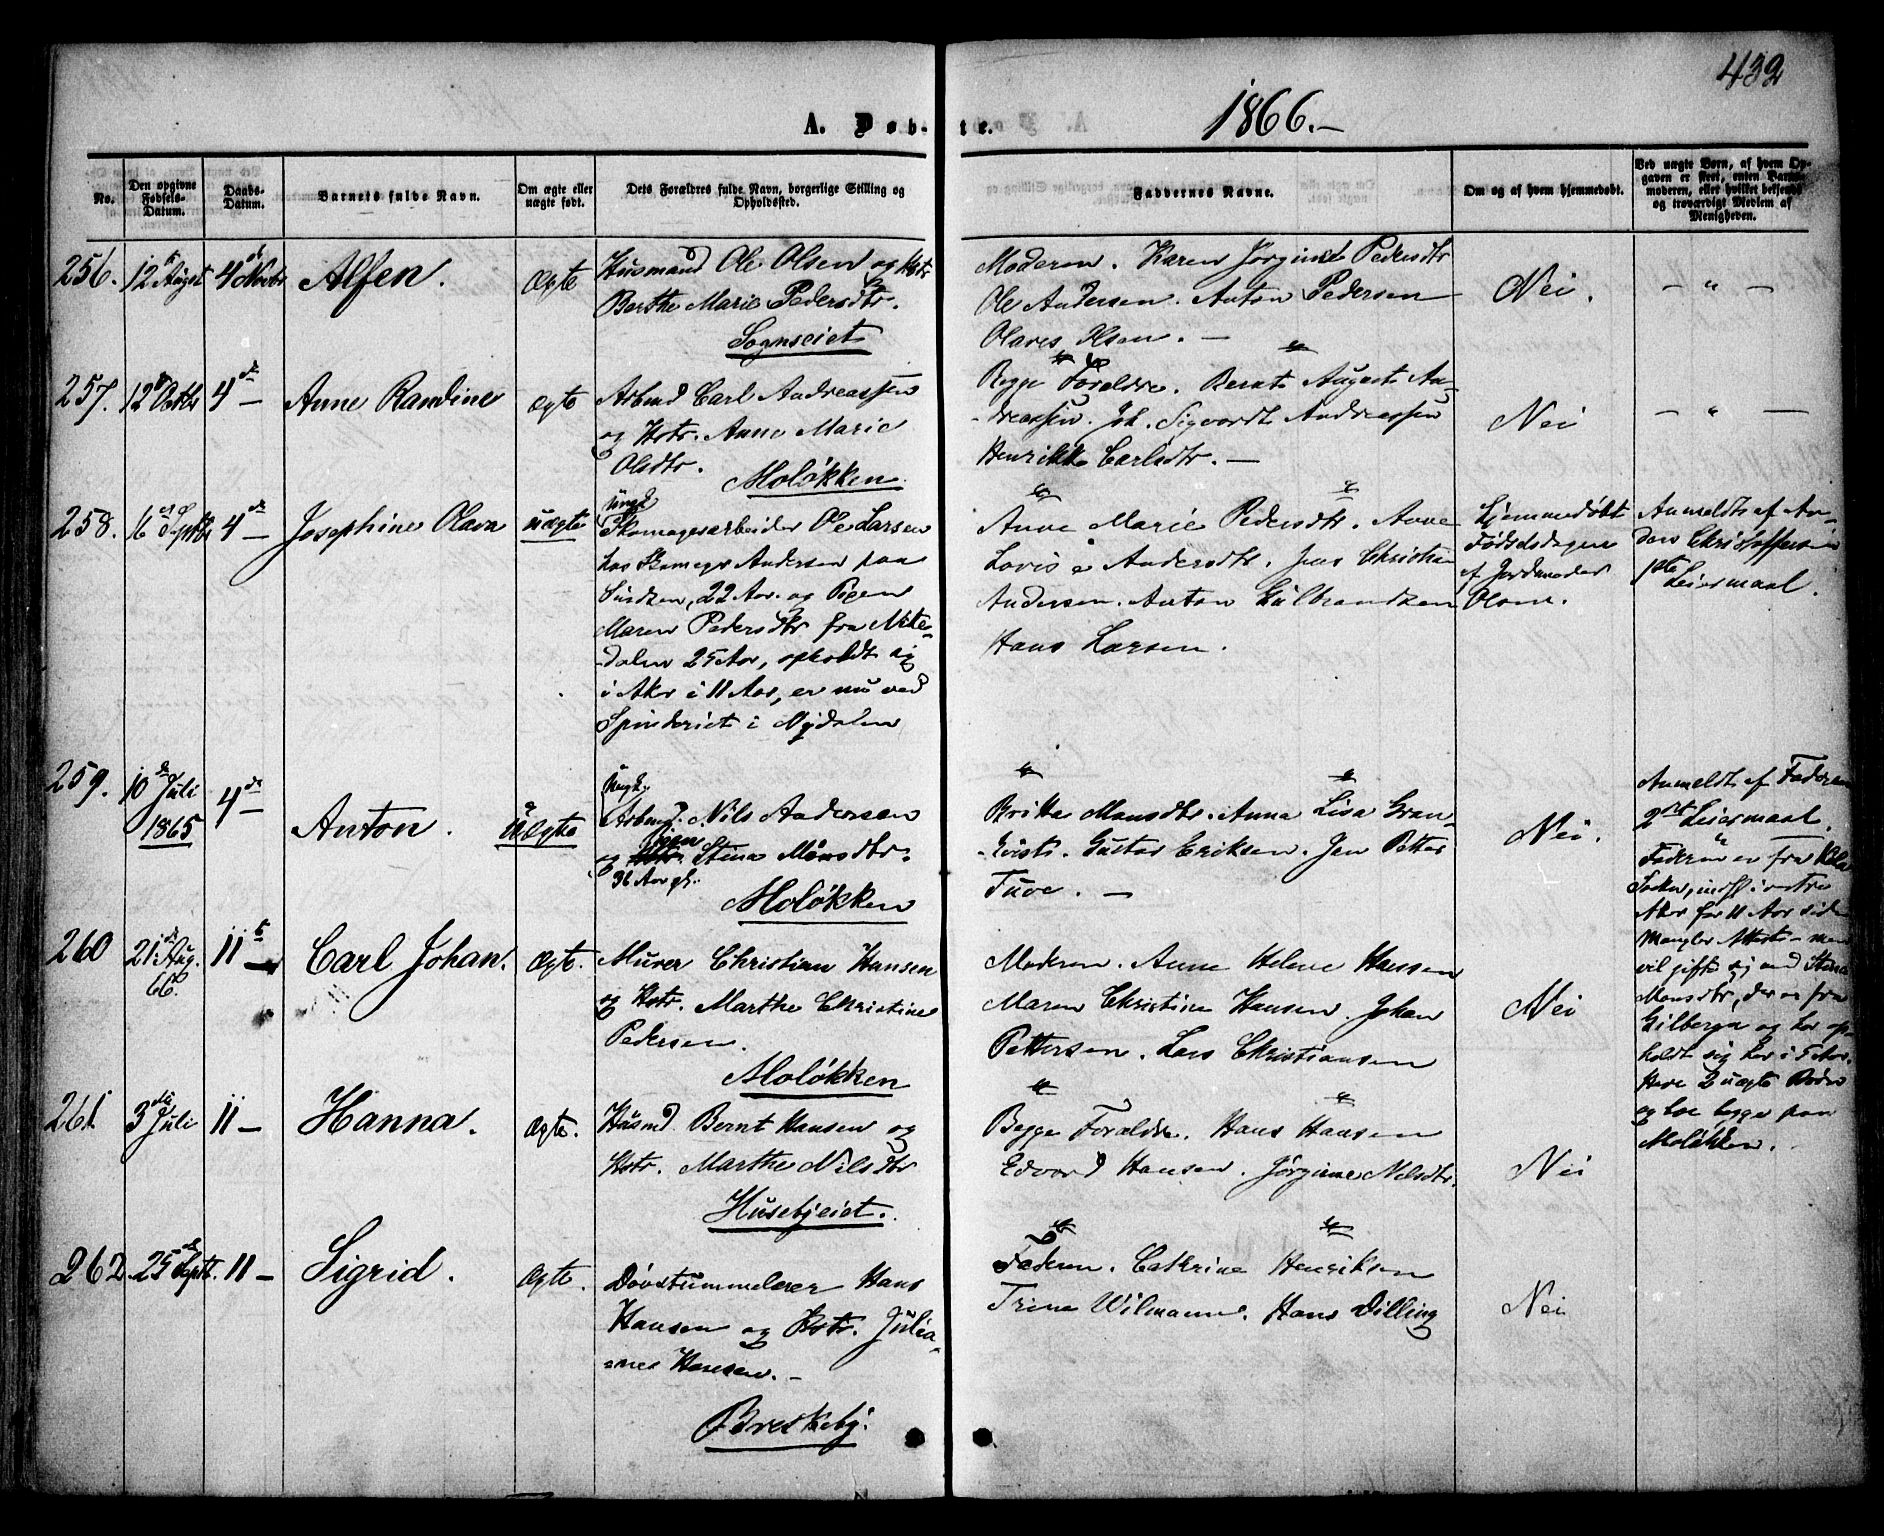 432
A. Døb-te. 1866.-
No.
Den opgivne Fødsels-Datum.
Daabs-Datum.
Barnets fulde Navn.
Om ægte eller uægte født.
Dets Forældres fulde Navn, borgerlige Stilling og Opholdssted.
Faddernes Navne.
Om og af hvem hjemmedøbt.
Ved uægte Børn, af hvem Opgaven er skeet, enten Barnemoderen, eller hvilket bekjendt og troværdigt Medlem af Menigheden.
256. 12 Augst 4 Novbr Alfen. Ægte
Husmand Ole Olsen og Hstr
Berthe Marie Pedersdtr.
Sognseiet
Moderen. Karen Jørgine Pedersdtr
Ole Andersen. Anton Pedersen
Olaves Olsen. -
Nei.
- " -
257. 12 Octbr 4 - Anne Randine Ægte
Arbmd Carl Andreassen
og Hstr. Anne Marie
Olsdtr.
Moløkken
Begge Forældre. Bernt August An-
-dreassen. Joh. Sigvardt Andreassen
Henrikke Carlsdtr. -
Nei
- " -
258. 16 Septbr 4 - Josephine Olava uægte
Ungk.
Skomagerarbeider Ole Larsen
hos Skomager Andersen paa
22 Aar. og Pigen
Maren Pedersdtr fra Nite-
-dalen 25 Aar, opholdt sig
i Aker i 11 Aar, er nu ved
Spinderiet i Nydalen
Anne Marie Pedersdtr. Anne
Lovise Andersdtr. Jens Christian
Andersen. Anton Gulbrandsen
Hans Larsen.
Hjemmedøbt
Fødselsdagen
af Jordmoder
Olsen.
Anmeldt af An-
ders Christoffersen
1ste Leiermaal.
259. 10 Juli
1865
4 - Anton. uÆgte
Ungk.
Arbmd. Nils Andersen
Pigen
og Hstr. Stina Månsdtr.
36 Aar gl.
Moløkken
Britta Monsdtr. Anna Lisa Gran-
-kvist. Gustav Eriksen. Jan Petter
Tuve. -
Nei.
Anmeldt af Faderen
2det Leiermaal.
Faderen er fra
Sokn, indfl. i vestre
Aker for 11 Aar siden
Mangler Attest - men
vil gifte sig med Stina
Monsdtr, der er fra
Gilberga og har op-
holdt sig her i 7 Aar.
Have 2 uægte Børn
og boe begge paa
Moløkken.
260 21 Aug.
66.
11 - Carl Johan. Ægte.
Murer Christian Hansen
og Hstr. Marthe Christine
Pedersen.
Moløkken
Moderen. Anne Helene Hansen
Maren Christine Hansen. Johan
Pettersen. Lars Christiansen
Nei
261. 3 Juli 11 - Hanna. Ægte.
Husmd. Bernt Hansen og
Hstr. Marthe Nilsdtr
Husebyeiet.
Begge Forældre. Hans Hansen
Edvard Hansen. Jørgine Nilsdtr.
Nei
262. 25 Septr. 11 - Sigrid. Ægte.
Døvstummelærer Hans
Hansen og Hstr. Julia-
-nne Hansen. -
Briskeby.
Faderen. Cathrine Henriksen
Trine Wilmann. Hans Dilling
Nei